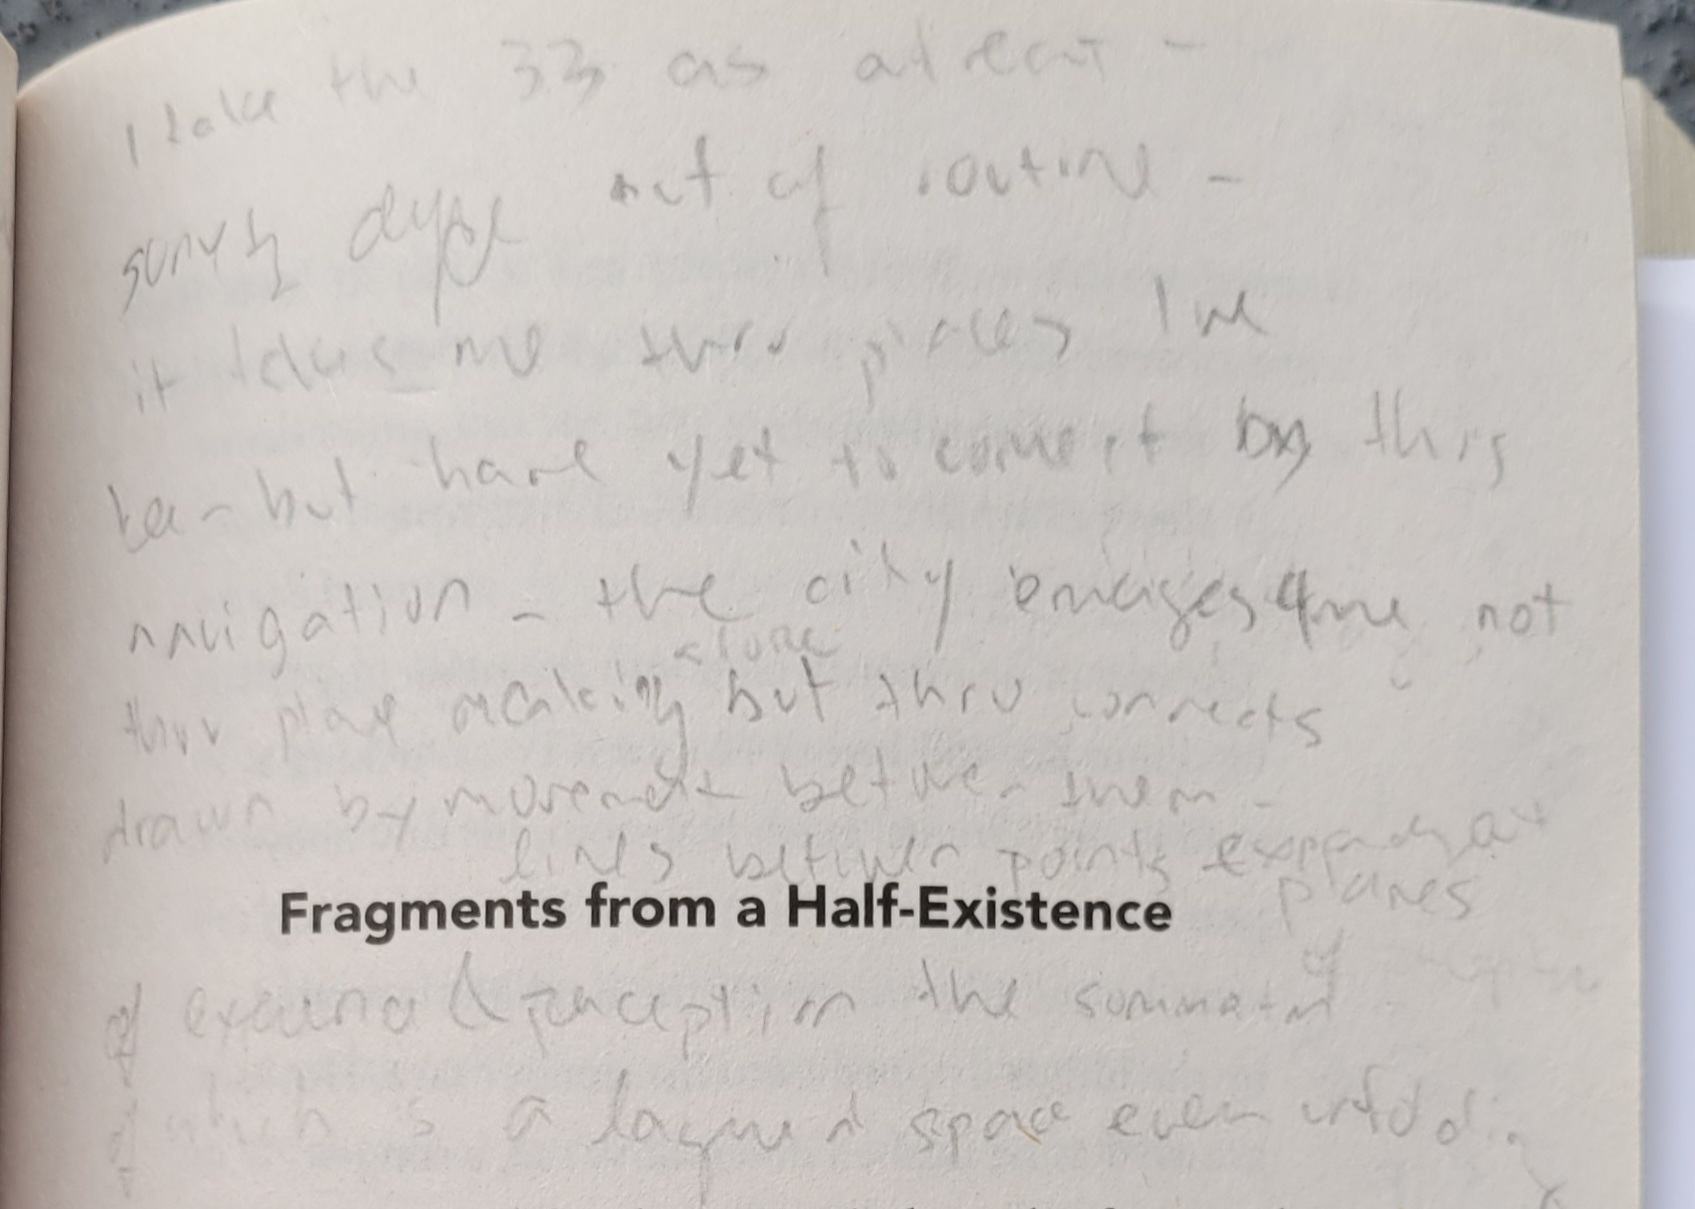 I take the 33 as a treat -
out of routine -
it takes me thru places I've
but have yet to connect by this
navigation - the city emerges not
alone
thru place making but thru connects
drawn by movement between them -
lines between points expand
planes
Fragments from a Half-Existence
of & perception the of
which is a layered space even unfolding